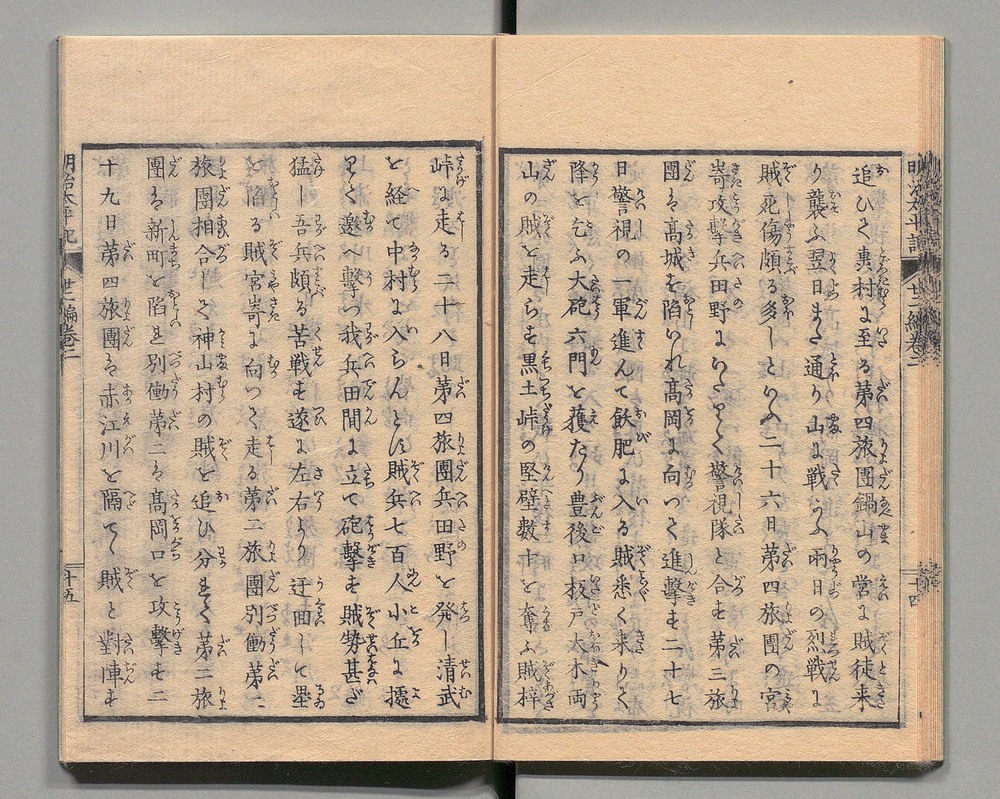 追ひて轟村に至る第四旅團鍋山の営に賊徒来
り襲ふ翌日また通り山に戦ふ両日の烈戦に
賊死傷頗る多しといふ二十六日第四旅團の宮
嵜攻撃兵田野にいたりて警視隊と合す第三旅
團は髙城を陥いれ髙岡に向つて進撃す二十七
日警視の一軍進んて飫肥に入る賊悉く来りて
降を乞ふ大砲六門を獲たり豊後口板戸大木両
山の賊を走らす黒土峠の堅壁数十を奪ふ賊梓
峠に走る二十八日第四旅團兵田野を発し清武
を経て中村に入らんとす賊兵七百人小丘に據
りて邀へ撃つ我兵田間に立て砲撃す賊勢甚だ
猛し吾兵頗る苦戦す遂に左右より迂回して塁
を陥る賊宮嵜に向つて走る第二旅團別働第二
旅團相合して神山村の賊を追ひ分れて第二旅
團は新町を陥れ別働第二は髙岡口を攻撃す二
十九日第四旅團は赤江川を隔てゝ賊と對陣す
明治太平記
廿二編巻二
十四
明治太平記
廿二編巻二
十五